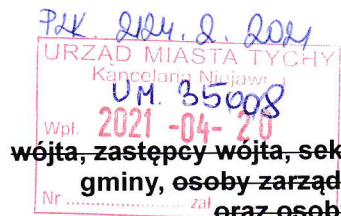 PZK. 2124. 2. 2021
URZĄD MIASTA TYCHY
Kancelaria Niejawna
UM. 35008
Wpł. 2021 -04- 20
wójta, zastępcy wójta, sek
gminy, osoby zarząd
Nr zał
oraz osob